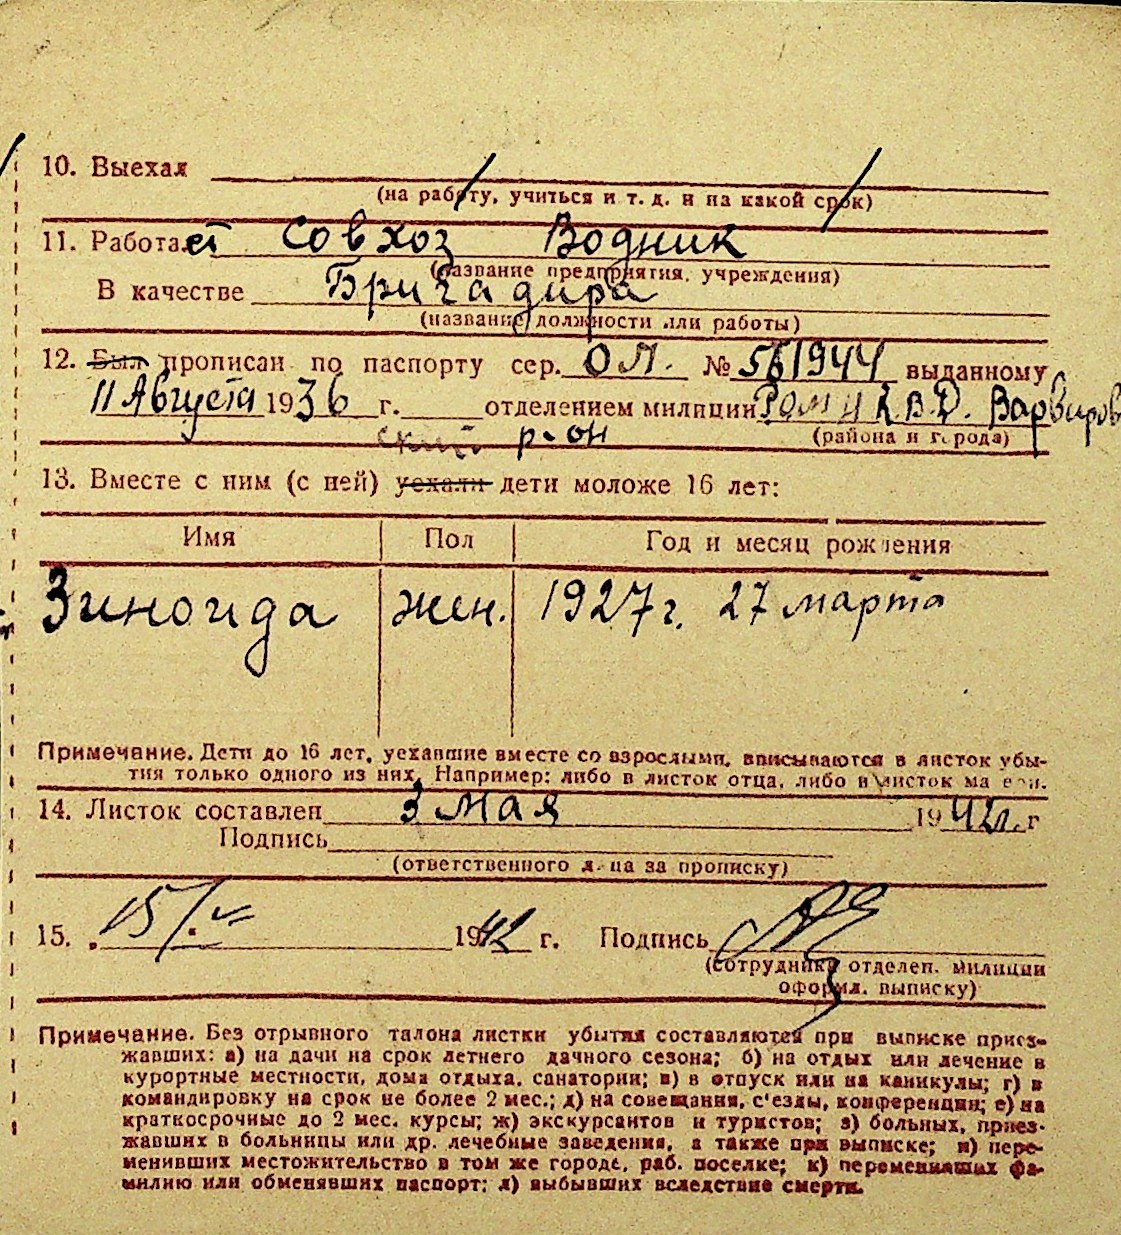 10. Выехал
(на работу, учиться и т. д. и на какой срок)
11. Работает Совхоз Водник
(название предприятия, учреждения)
В качестве Бригадира
(название должности или работы)
12. Был прописан по паспорту сер. ОЛ. № 561944 выданному
11 Августа 1936 г. отделением милиции Ром Н.К.В.Д. Варваров
ский р-он (района и города)
13. Вместе с ним (с ней) уехали дети моложе 16 лет:
Имя Пол Год и месяц рождения
Зиноида жен. 1927 г. 27 марта
Примечание. Дети до 16 лет, уехавшие вместе со взрослыми, вписываются в листок убы-
тия только одного из них. Например: либо в листок отца, либо в листок матери.
14. Листок составлен 3 мая 1942 г
Подпись
(ответственного лица за прописку)
15. 15/V 1942 г. Подпись
(сотрудника отделен. милиции
оформл. выписку)
Примечание. Без отрывного талона листки убытия составляются при выписке приез-
жавших: а) на дачи на срок летнего дачного сезона; б) на отдых или лечение в
курортные местности, дома отдыха, санатории; в) в отпуск или на каникулы; г) в
командировку на срок не более 2 мес.; д) на совещания, с'езды, конференции; е) на
краткосрочные до 2 мес. курсы; ж) экскурсантов и туристов; з) больных, приез-
жавших в больницы или др. лечебные заведения, а также при выписке; и) пере-
менивших местожительство в том же городе, раб. поселке; к) переменивших фа-
милию или обменявших паспорт; л) выбывших вследствие смерти.